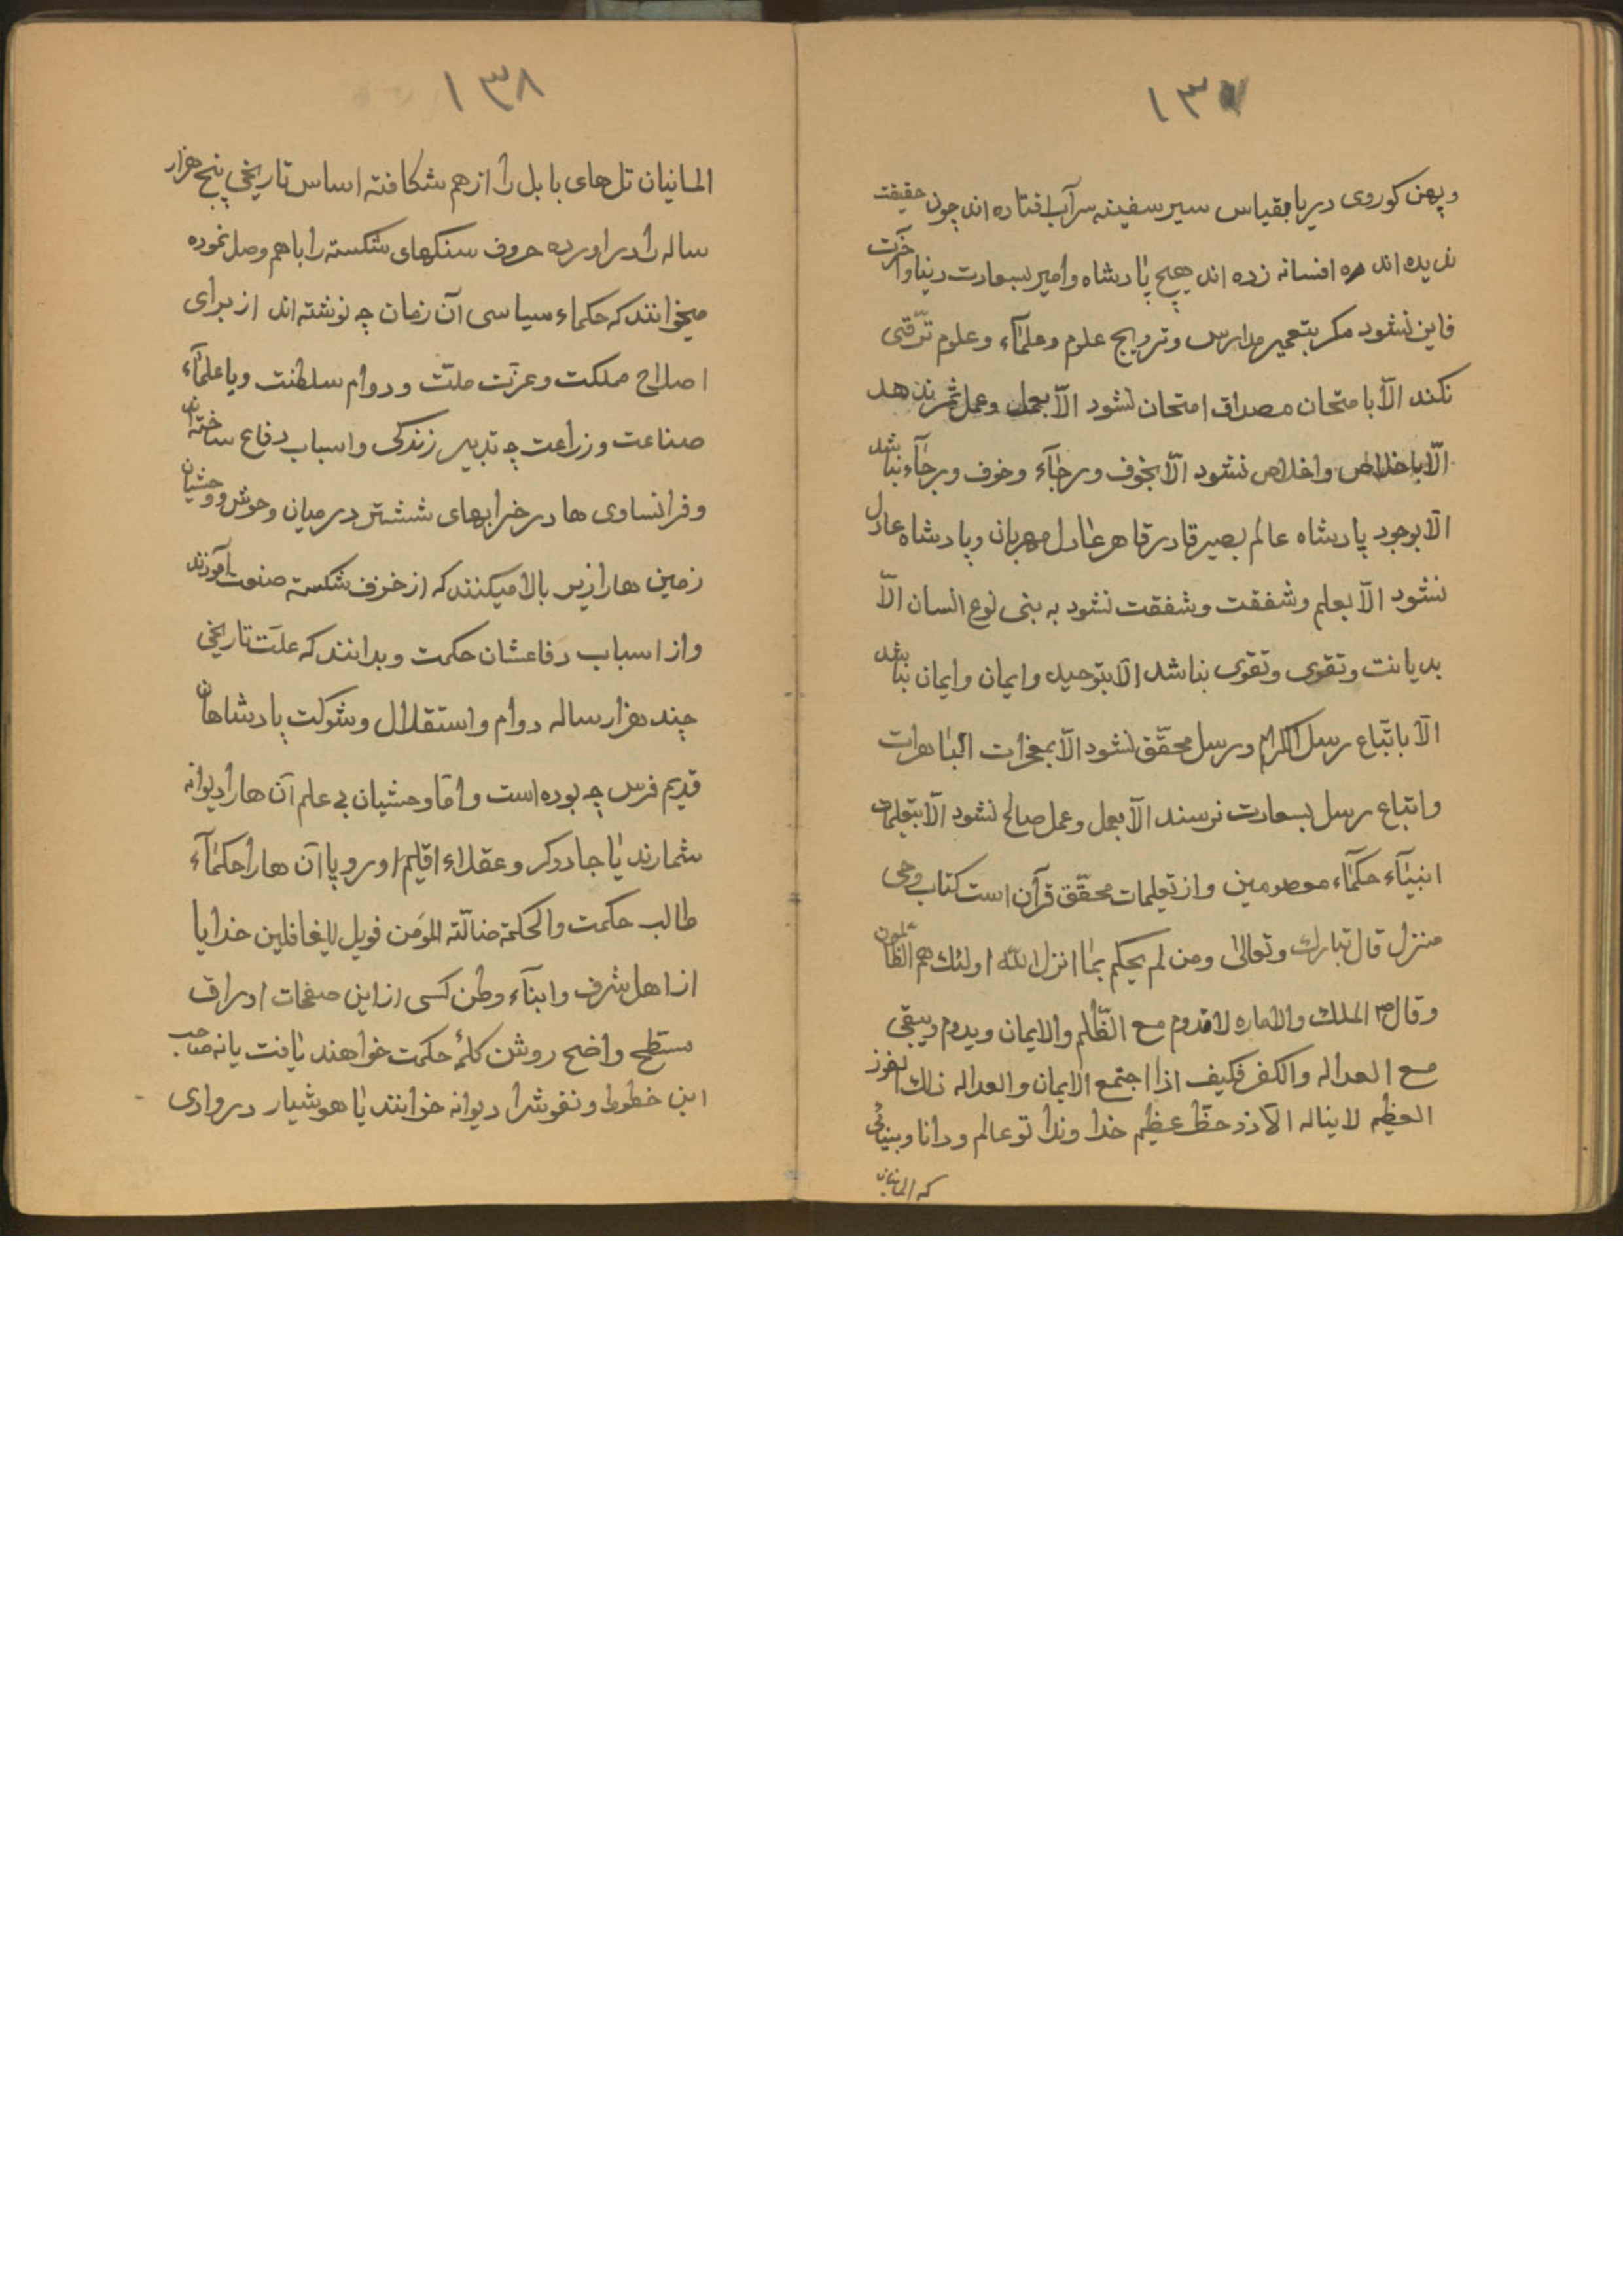 ١٣٧
وپهن کوروی دیریا بقیاس سیر سفینه سرآب افتاده اند چون حقیقت
ندیده اند ره افسانه زده اند هیچ پادشاه وامیر بسعادت دنیا وآخرت
فاین نشود مکر بتعمیر مدارس وترویج علوم وعلمآء وعلوم ترّقی
نکند الّا بامتحان مصداق امتحان نشود الّا بعمل وعمل ثمر ندهد
الّا باخلاص واخلاص نشود الّا بخوف ورجآء وخوف ورجآء نباشد
الّا بوجود پادشاه عالم بصیر قادر قاهر عادل مهربان وپادشاه عادل
نشود الّا بعلم وشفقت وشفقت نشود به بنی نوع انسان الّا
بدیانت وتقوی وتقوی نباشد الّا بتوحید وایمان وایمان نباشد
الّا باتّباع رسل الکرام ورسل محقّق نشود الّا بمعجزات الباهرات
واتباع رسل بسعادت نرسند الّا بعمل وعمل صالح نشود الّا بتعلیمات
انبیآء حکمآء معصومین واز تعلیمات محقّق قرآن است کتاب وحی
منزل قال تبارك وتعالی ومن لم یحکم بما انزل الله اولئك هم الظالمون
وقال ص الملك والاماره لاتدوم مع الظّلم والایمان ویدوم ویبقی
مع العداله والکفر فکیف اذا اجتمع الایمان والعداله ذلك الفوز
العظیم لایناله الّا ذو حظّ عظیم خدا وندا تو عالم ودانا وبینائی
که المانیان
١٣٨
المانیان تل های بابل را از هم شکافته اساس تاریخی پنج هزار
ساله را دراورده حروف سنکهای شکسته را باهم وصل نموده
میخوانند که حکماء سیاسی آن زمان چه نوشته اند از برای
اصلاح مملکت وعزّت ملّت ودوام سلطنت ویا علمآء
صناعت وزراعت چه تدبیر زندکی واسباب دفاع ساخته اند
وفرانساوی ها در خرابهای ششتر درمیان وحوش ووحشیان
زمین ها را زیر بالا میکنند که از خزف شکسته صنعت آموزند
واز اسباب دفاعشان حکمت وبدانند که علّت تاریخی
چند هزار ساله دوام واستقلال وشوکت پادشاهان
قدیم فرس چه بوده است وامّا وحشیان بی علم آن ها را دیوانه
شمارند یا جادوکر وعقلاء اقلیم اوروپا آن ها را حکمآء
طالب حکمت والحکمة ضالّته المؤمن فویل للغافلین خدایا
از اهل شرف وابنآء وطن کسی از این صفحات اوراق
مستطح واضح روشن کلمۀ حکمت خواهند یافت یا نه صاحب
این خطوط ونقوشرا دیوانه خوانند یا هوشیار در وادی